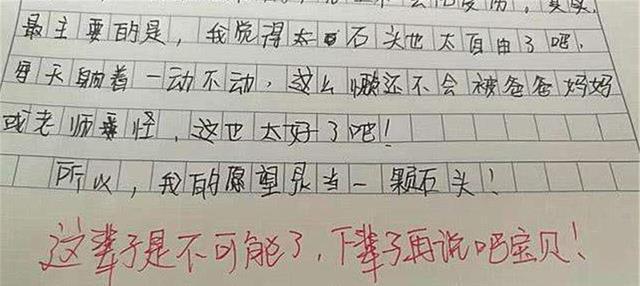 最主要的是，我觉得太石头也太自由了吧，
每天躺着一动不动，这么懒还不会被爸爸妈妈
或老师责怪，这也太好了吧！
所以，我的愿望是当一颗石头！
这辈子是不可能了，下辈子再说吧宝贝！